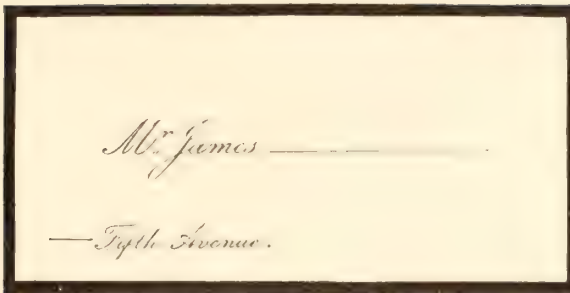 Mr James —— — ——
— Fifth Avenue.